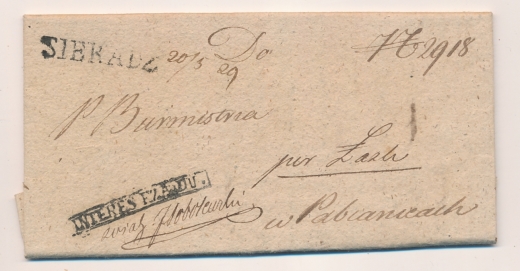 SIERADZ 20/5 29 Do № 2918
P Burmistrza
per Łask
INTERES RZĄDOW.
w Pabianicach